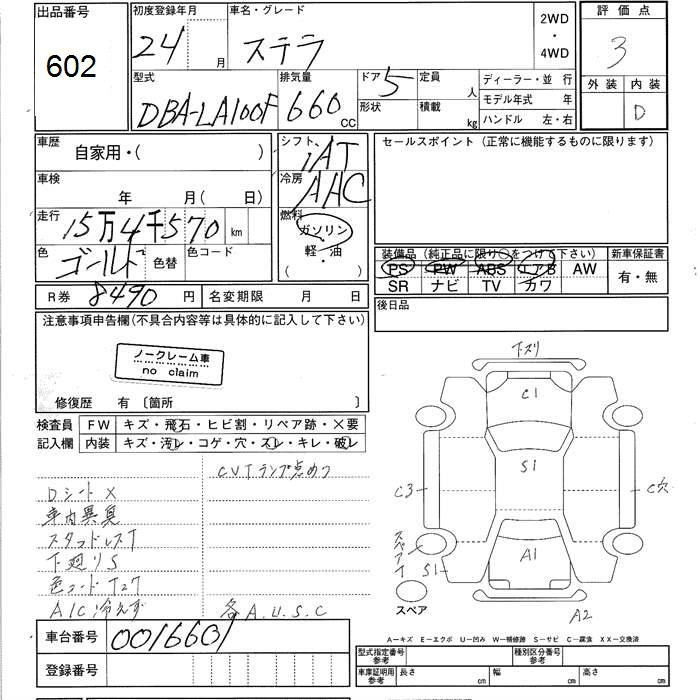 出品番号
602
初度登録年月
24 月
車名・グレード
ステラ
2WD
・
4WD
評価点
3
外装 内装
D
型式
DBA-LA100F
排気量
660 CC
ドア
5
形状
定員
人
積載
kg
ディーラー・並 行
モデル年式 年
ハンドル 左・右
車歴
自家用・( )
車検
年 月( 日)
走行
15万4千570 km
色
ゴールド
色替
色コード
シフト
IAT
冷房
AAC
燃料
ガソリン
軽・油
( )
セールスポイント(正常に機能するものに限ります)
装備品(純正品に限り○をつけて下さい)
新車保証書
PS PW ABS エアB AW
SR ナビ TV カワ
有・無
R券 8490 円
名変期限 月 日
後日品
注意事項申告欄(不具合内容等は具体的に記入して下さい)
ノークレーム車
no claim
修復歴 有 〔箇所 〕
検査員
記入欄
FW キズ・飛石・ヒビ割・リペア跡・×要
内装 キズ・汚レ・コゲ・穴・スレ・キレ・破レ
CVTランプ点めつ
Dシート×
車内異臭
スタッドレスT
下廻りS
色コードT27
A/C冷えず
各A.U.S.C
下スリ
C1
S1
C3
C穴
A1
スペアT
S1
スペア
A2
A－キズ E－エクボ U－凹み W－補修跡 S－サビ C－腐食 XX－交換済
車台番号
0016601
登録番号
型式指定番号
参考
種別区分番号
参考
車庫証明用
参考
長さ cm
幅 cm
高さ cm